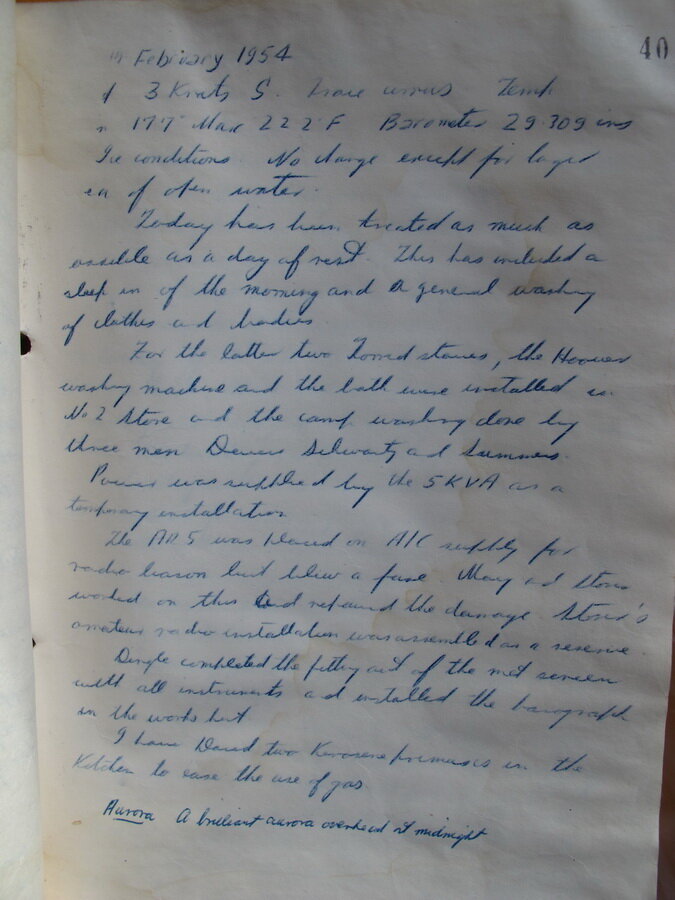 40
February 1954
3 Knots S. Trace cirrus Temp
17.7° Max 22.2°F Barometer 29.309 ins
Ice conditions. No change except for larger
of open water.
Today has been treated as much as
ossible as a day of rest. This has included a
sleep in of the morning and a general washing
of clothes and bodies.
For the latter two Torrid stoves, the Hoover
washing machine and the bath were installed in
No 2 Store and the camp washing done by
three men Dovers Schwartz and Summers.
Power was supplied by the 5KVA as a
temporary installation
The AR5 was placed on A/C supply for
radio liason but blew a fuse. Macy and Storer
worked on this and repaired the damage. Storer's
amateur radio installation was assembled as a reserve.
Dingle completed the fitting out of the met screen
with all instruments and installed the barograph
in the works hut
I have placed two Kerosene primuses in the
Kitchen to ease the use of gas
Aurora A brilliant aurora overhead at midnight